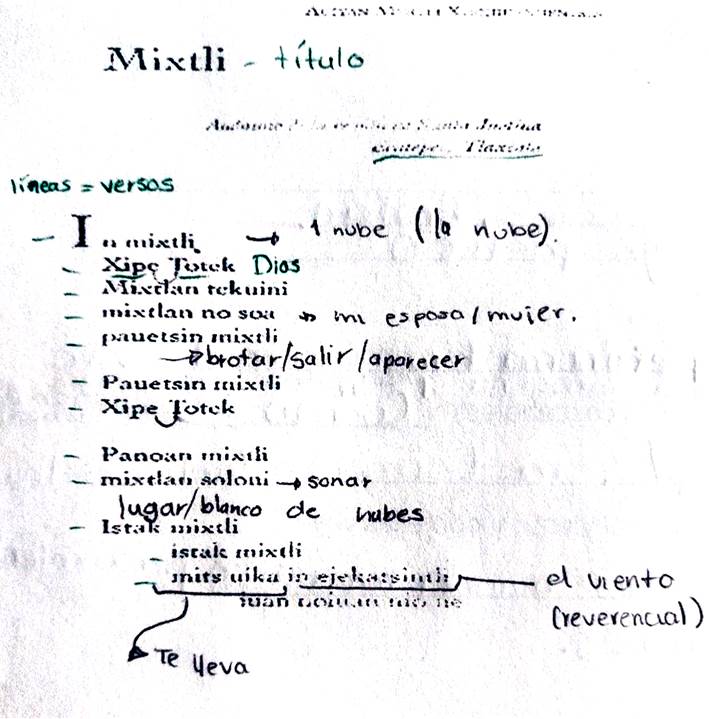 Mixtli - título
Santa Justina
Tlaxcala
líneas = versos
- In mixtli → 1 nube (la nube).
- Xipe Totek Dios
- Mixtlan tekuini
- mixtlan no soa → mi esposa/mujer.
- pauetsin mixtli
→ brotar/salir/aparecer
- Pauetsin mixtli
- Xipe Totek
- Panoan mixtli
- mixtlan soloni → sonar
lugar/blanco de nubes
- Istak mixtli
- istak mixtli
- mits uika in ejekatsintli — el viento
iuan
(reverencial)
Te lleva